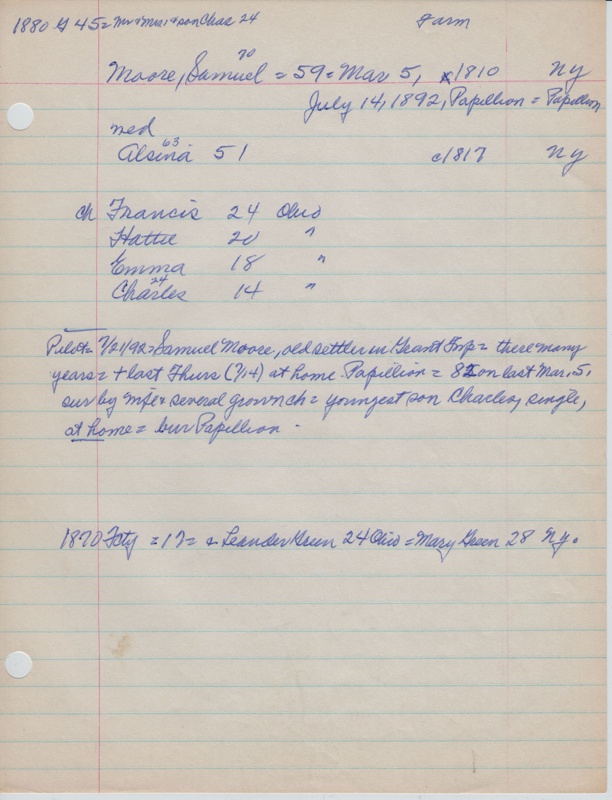 1880 G 45 = Mr & Mrs. & son Chas 24 Farm
70
Moore, Samuel = 59 = Mar 5, 1810 NY
July 14, 1892, Papillion = Papillion
med
63
Alsina 51 c1817 NY
ch Francis 24 Ohio
Hattie 20 "
Emma 18 "
24
Charles 14 "
Pilot = 7/21/92 = Samuel Moore, old settler in Grant Twp = there many
years = + last Thurs (7/14) at home Papillion = 82 on last Mar. 5,
sur by wife & several grown ch = youngest son Charles, single,
at home = bur Papillion.
1870 = 17 = & Leander Green 24 Ohio = Mary Green 28 NY.